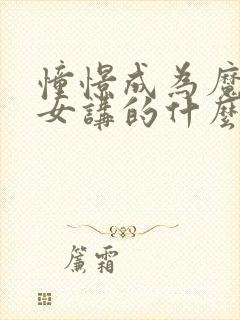 憧憬成為魔
女講的什麼
簾霜